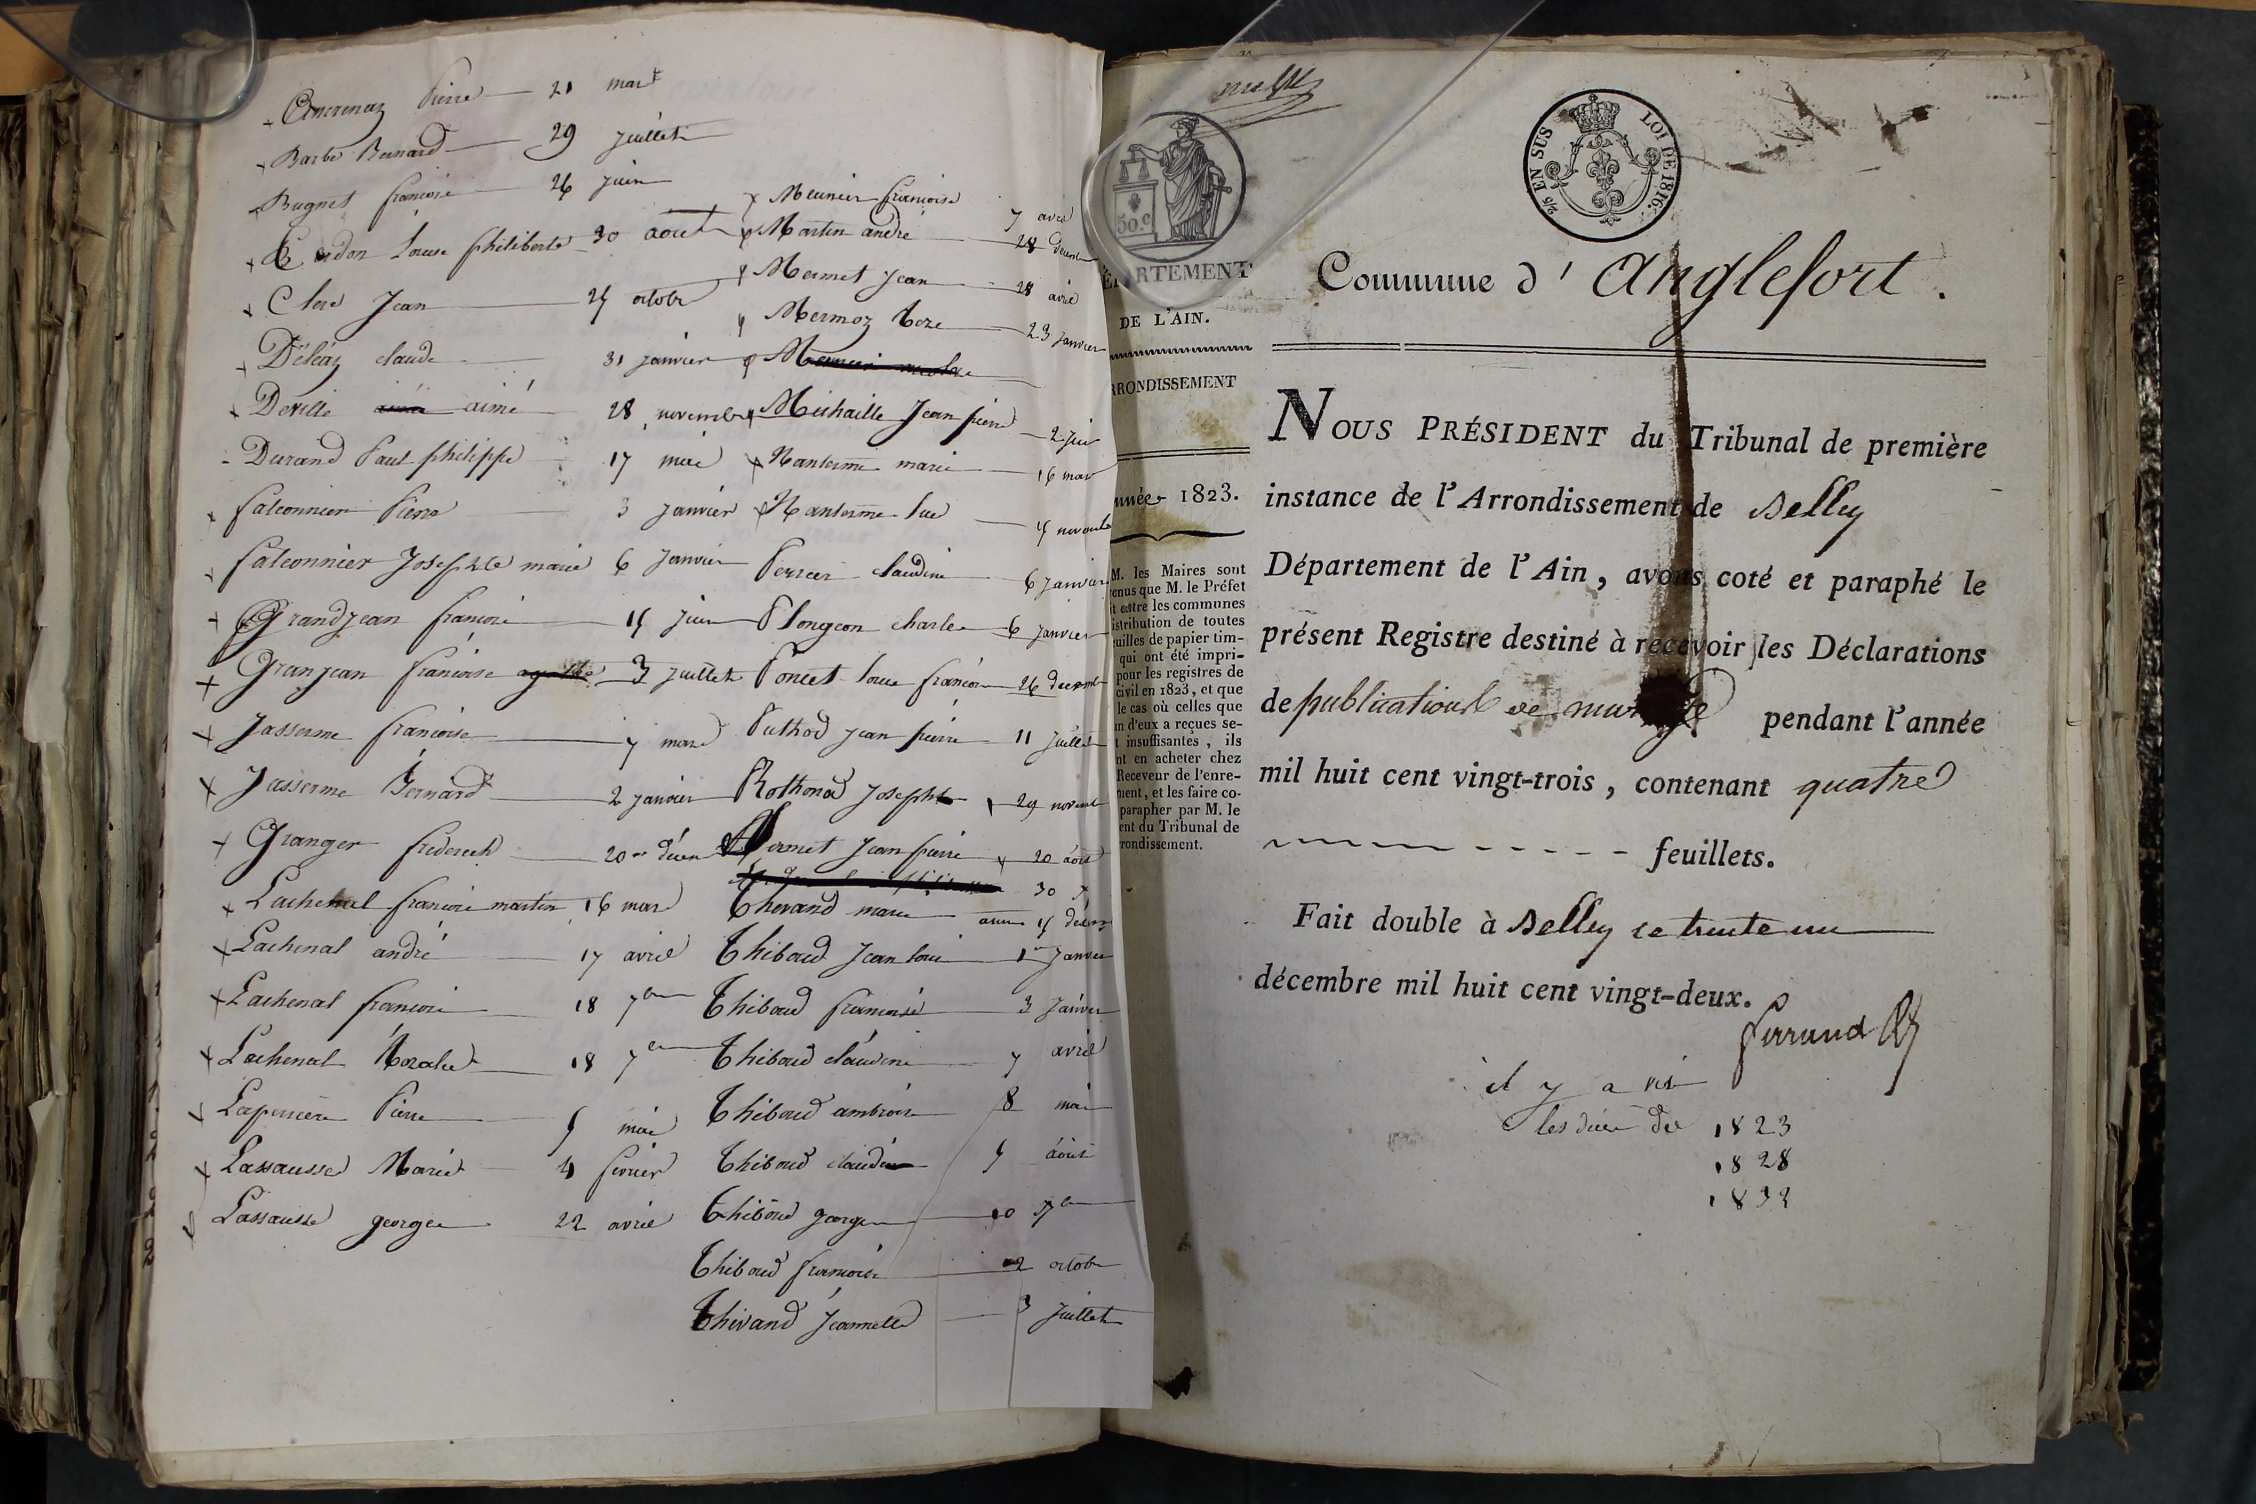 Pierre 21 mars
Barbe Bernard 29 juillet
Bugnet françois 26 juin
Cerdon Louise philiberte 30 août
Clerc Jean 25 octobr
Déléaz claude 31 janvier
Deville aimé 28 novembr
Durand Paul philippe 17 mai
falconnier Pierre 3 Janvier
falconnier Josephte marie 6 Janvier
Grandjean françois 15 juin
Granjean françoise 3 juillet
Jasserme françoise 7 mars
Jasserme Bernard 2 janvier
Granger frederich 20 décem
Lachenal françois martin 16 mars
Lachenal andré 17 avril
Lachenal françois 18 7bre
Lachenal Rozalie 18 7bre
Laperriere Pierre 5 mai
Lassausse Marie 4 fevrier
Lassausse george 22 avril
Meunier françoise 7 avril
Martin andré 28 décem
Mermet Jean 28 avril
Mermoz 23 Janvier
Michaille Jean pierre 2 juin
Nanterme marie 16 mars
Nanterme Luc 4 novembr
Perrier claudine 6 janvier
Plongeon charles 6 janvier
Poncet Louis françois 26 decemb
Puthod jean pierre 11 juillet
Rothonod Josephte 29 novemb
Vernet Jean pierre 20 août
30
Thévand marie anne 15 décem
Thiboud Jean louis 1er Janvier
Thiboud françoise 3 Janvier
Thiboud claudine 7 avril
Thiboud ambroise 8 mai
Thiboud claudine 5 août
Thiboud george 10 7bre
Thiboud françoise 2 octobr
Thivand Jeannette 3 Juillet
50.c
2/5 EN SUS LOI DE 1816.
ARTEMENT
DE L'AIN.
RRONDISSEMENT
nnée 1823.
M. les Maires sont
enus que M. le Préfet
t entre les communes
istribution de toutes
uilles de papier tim-
qui ont été impri-
pour les registres de
civil en 1823, et que
le cas où celles que
n d'eux a reçues se-
t insuffisantes, ils
nt en acheter chez
Receveur de l'enre-
ment, et les faire co-
parapher par M. le
ent du Tribunal de
rondissement.
Commune d'anglefort.
NOUS PRÉSIDENT du Tribunal de première
instance de l'Arrondissement de Belley
Département de l'Ain, avons coté et paraphé le
présent Registre destiné à recevoir les Déclarations
de publications de mariage pendant l'année
mil huit cent vingt-trois, contenant quatre
feuillets.
Fait double à Belley ce trente un
décembre mil huit cent vingt-deux.
ferrand
il y a
les de 1823
1828
1832